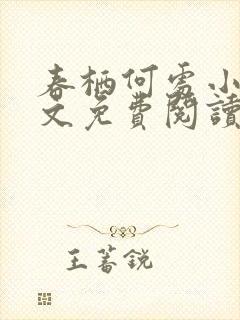 春栖何處小
文免費閱讀
王蓄銳